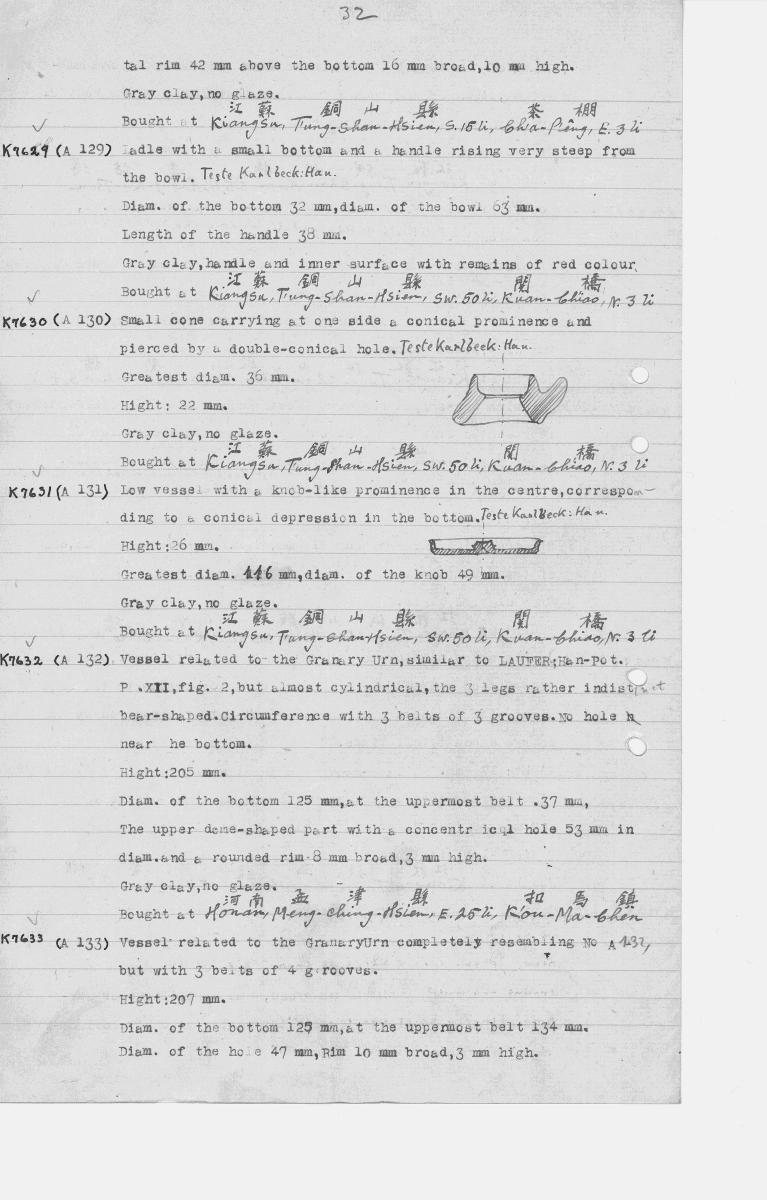 32
tal rim 42 mm above the bottom 16 mm broad,10 mm high.
Gray clay,no glaze.
江 蘇 銅 山 縣 茶 棚
Bought at Kiangsu, Tung-Shan-Hsien, S.15 li, Ch'a-P'êng, E. 3 li
K7629 (A 129) ladle with a small bottom and a handle rising very steep from
the bowl. Teste Karlbeck: Han.
Diam. of the bottom 32 mm,diam. of the bowl 63 mm.
Length of the handle 38 mm.
Gray clay,handle and inner surface with remains of red colour.
江 蘇 銅 山 縣 関 橋
Bought at Kiangsu, Tung-Shan-Hsien, SW. 50 li, Kuan-Chiao, N. 3 li
K7630 (A 130) Small cone carrying at one side a conical prominence and
pierced by a double-conical hole. Teste Karlbeck: Han.
Greatest diam. 36 mm.
Hight: 22 mm.
Gray clay,no glaze.
江 蘇 銅 山 縣 関 橋
Bought at Kiangsu, Tung-Shan-Hsien, SW. 50 li, Kuan-Chiao, N. 3 li
K7631 (A 131) Low vessel with a knob-like prominence in the centre,correspon-
ding to a conical depression in the bottom. Teste Karlbeck: Han.
Hight:26 mm.
Greatest diam. 116 mm,diam. of the knob 49 mm.
Gray clay,no glaze.
江 蘇 銅 山 縣 関 橋
Bought at Kiangsu, Tung-Shan-Hsien, SW. 50 li, Kuan-Chiao, N. 3 li
K7632 (A 132) Vessel related to the Granary Urn,similar to LAUFER:Han-Pot.
P .XII,fig. 2,but almost cylindrical,the 3 legs rather indistinct
bear-shaped.Circumference with 3 belts of 3 grooves.No hole
near he bottom.
Hight:205 mm.
Diam. of the bottom 125 mm,at the uppermost belt .37 mm,
The upper dome-shaped part with a concentr icql hole 53 mm in
diam.and a rounded rim 8 mm broad,3 mm high.
Gray clay,no glaze.
河 南 孟 津 縣 扣 馬 鎮
Bought at Honan, Meng-Ching-Hsien, E. 25 li, K'ou-Ma-Chen
K7633 (A 133) Vessel related to the GranaryUrn completely resembling No A 132,
but with 3 belts of 4 grooves.
Hight:207 mm.
Diam. of the bottom 125 mm,at the uppermost belt 134 mm.
Diam. of the hole 47 mm,Rim 10 mm broad,3 mm high.